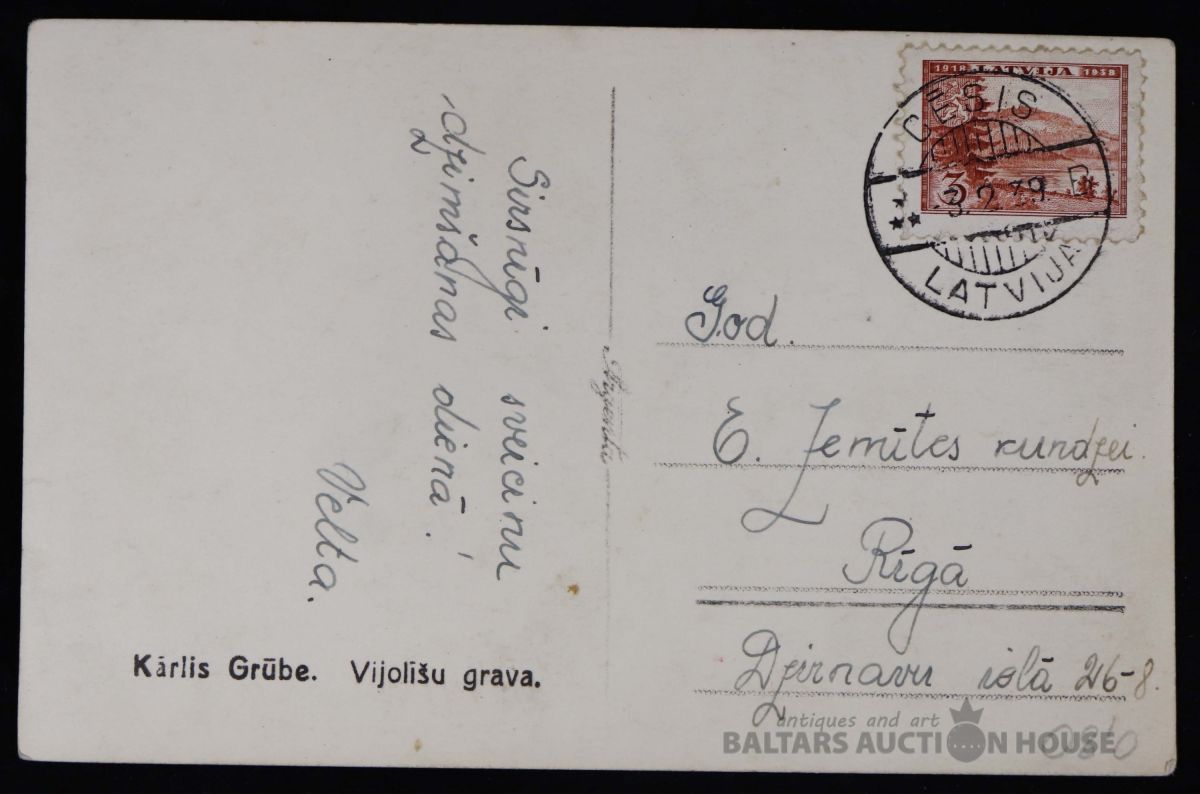 Sirsnīgi sveicinu
dzimšanas dienā!
Velta.
Kārlis Grūbe. Vijolīšu grava.
1918 LATVIJA 1938
3
CĒSIS
3.2.39. B
LATVIJA
God.
E. Zemītes kundzei.
Rīgā
Dzirnavu ielā 26-8.
antiques and art
BALTARS AUCTION HOUSE